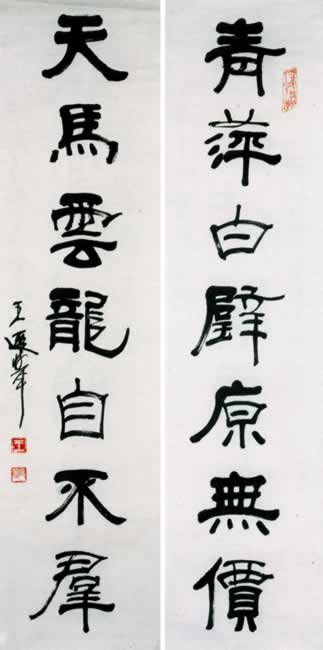 青萍白璧原無價
天馬雲龍自不羣
王遐举